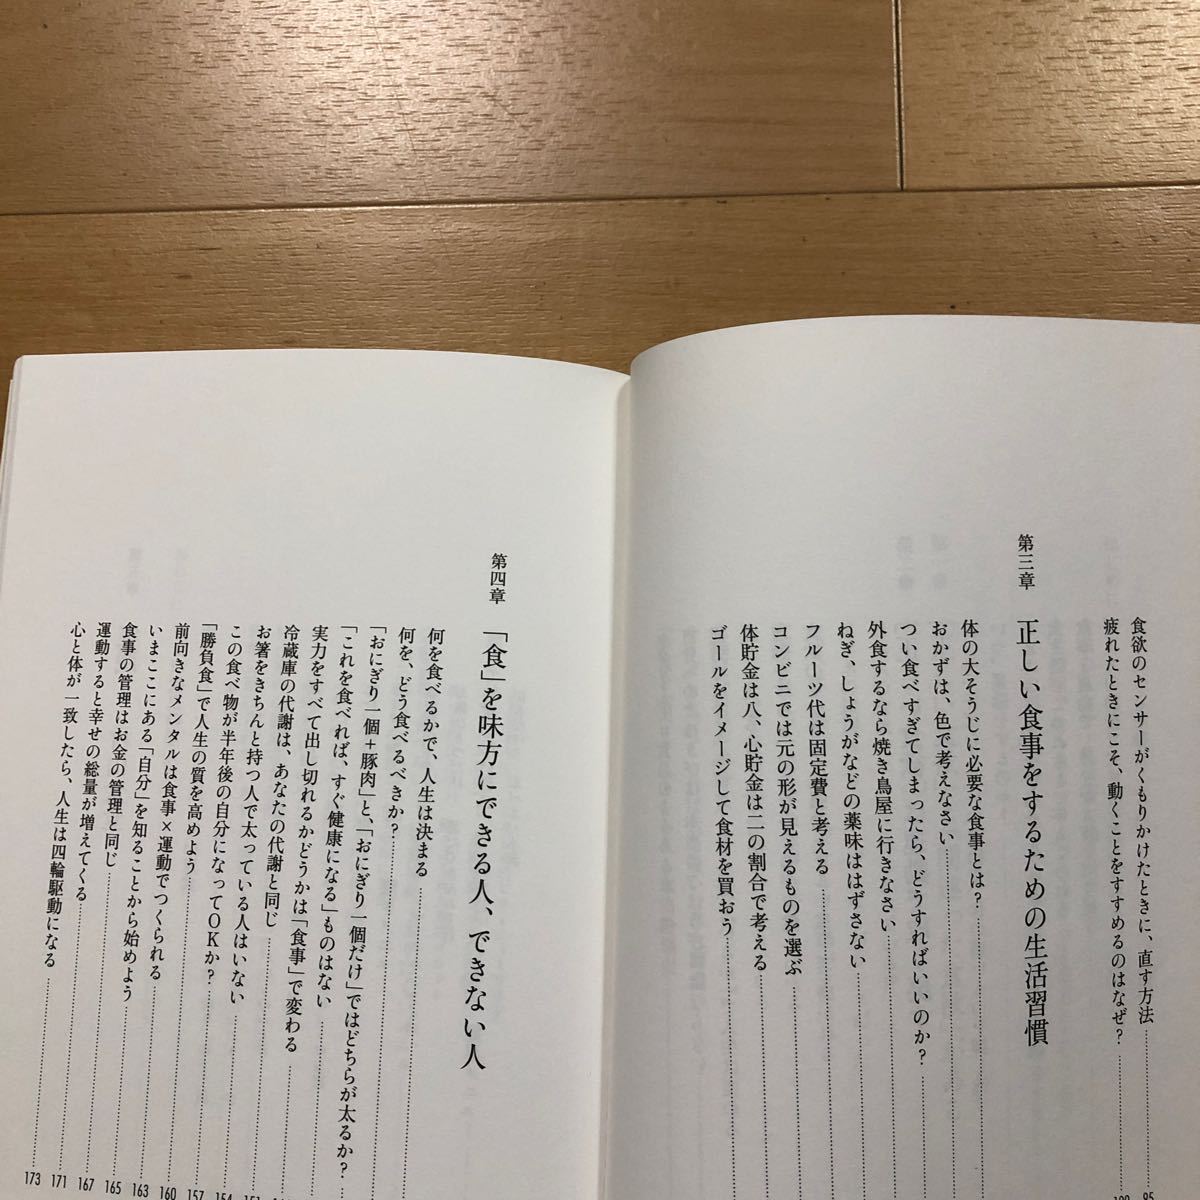 食欲のセンサーがくもりかけたときに、直す方法 95
疲れたときにこそ、動くことをすすめるのはなぜ？
第三章 正しい食事をするための生活習慣
体の大そうじに必要な食事とは？
おかずは、色で考えなさい
つい食べすぎてしまったら、どうすればいいのか？
外食するなら焼き鳥屋に行きなさい
ねぎ、しょうがなどの薬味ははずさない
フルーツ代は固定費と考える
コンビニでは元の形が見えるものを選ぶ
体貯金は八、心貯金は二の割合で考える
ゴールをイメージして食材を買おう
第四章 「食」を味方にできる人、できない人
何を食べるかで、人生は決まる
何を、どう食べるべきか？
「おにぎり一個＋豚肉」と、「おにぎり一個だけ」ではどちらが太るか？
「これを食べれば、すぐ健康になる」ものはない
実力をすべて出し切れるかどうかは「食事」で変わる
冷蔵庫の代謝は、あなたの代謝と同じ
お箸をきちんと持つ人で太っている人はいない 151
この食べ物が半年後の自分になってOKか？ 154
「勝負食」で人生の質を高めよう 157
前向きなメンタルは食事×運動でつくられる 160
いまここにある「自分」を知ることから始めよう 163
食事の管理はお金の管理と同じ 165
運動すると幸せの総量が増えてくる 167
心と体が一致したら、人生は四輪駆動になる 171
173